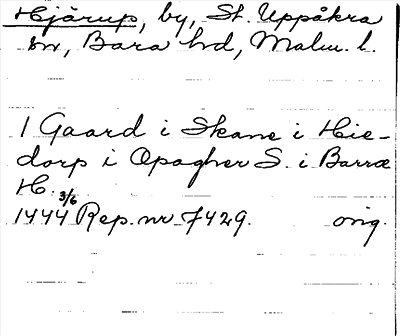 Hjärup, by, St. Uppåkra
sn, Bara hd, Malm. l.
1 Gaard i Skane i Hie-
dorp i Opagher S. i Barræ
H.
3/6
1444 Rep. nr 7429. orig.